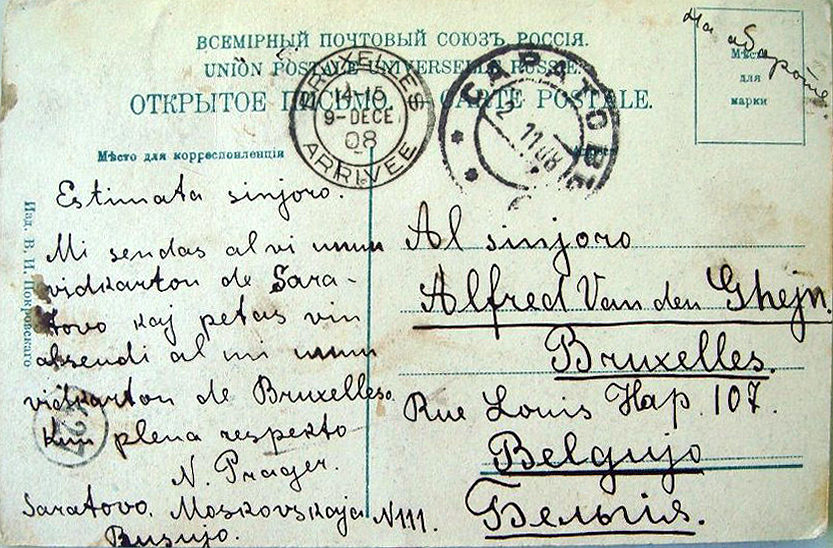 ВСЕМІРНЫЙ ПОЧТОВЫЙ СОЮЗЪ. РОССІЯ.
UNION POSTALE UNIVERSELLE. RUSSIE.
ОТКРЫТОЕ ПИСЬМО. — CARTE POSTALE.
на оборотѣ
Мѣсто
для
марки
BRUXELLES
14-15
9-DECE
08
ARRIVEE
САРАТОВЪ
11 08
Мѣсто для корреспонденціи
Изд. В. И. Покровскаго
Estimata sinjoro.
Mi sendas al vi unun
vidkarton de Sara-
tovo kaj petas vin
absendi al mi unun
vidkarton de Bruxelles.
Kun plena respekto
N. Prager.
Saratovo. Moskovskaja N111.
Rusujo.
427
Al sinjoro
Alfred Van den Ghejn.
Bruxelles.
Rue Louis Hap. 107.
Belgujo
Бельгія.